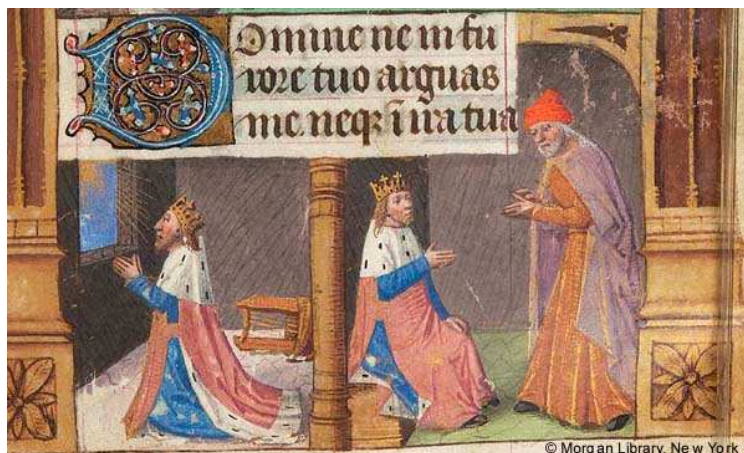 Domine ne in fu
rore tuo arguas
me. neqꝫ ī ira tua
© Morgan Library, New York